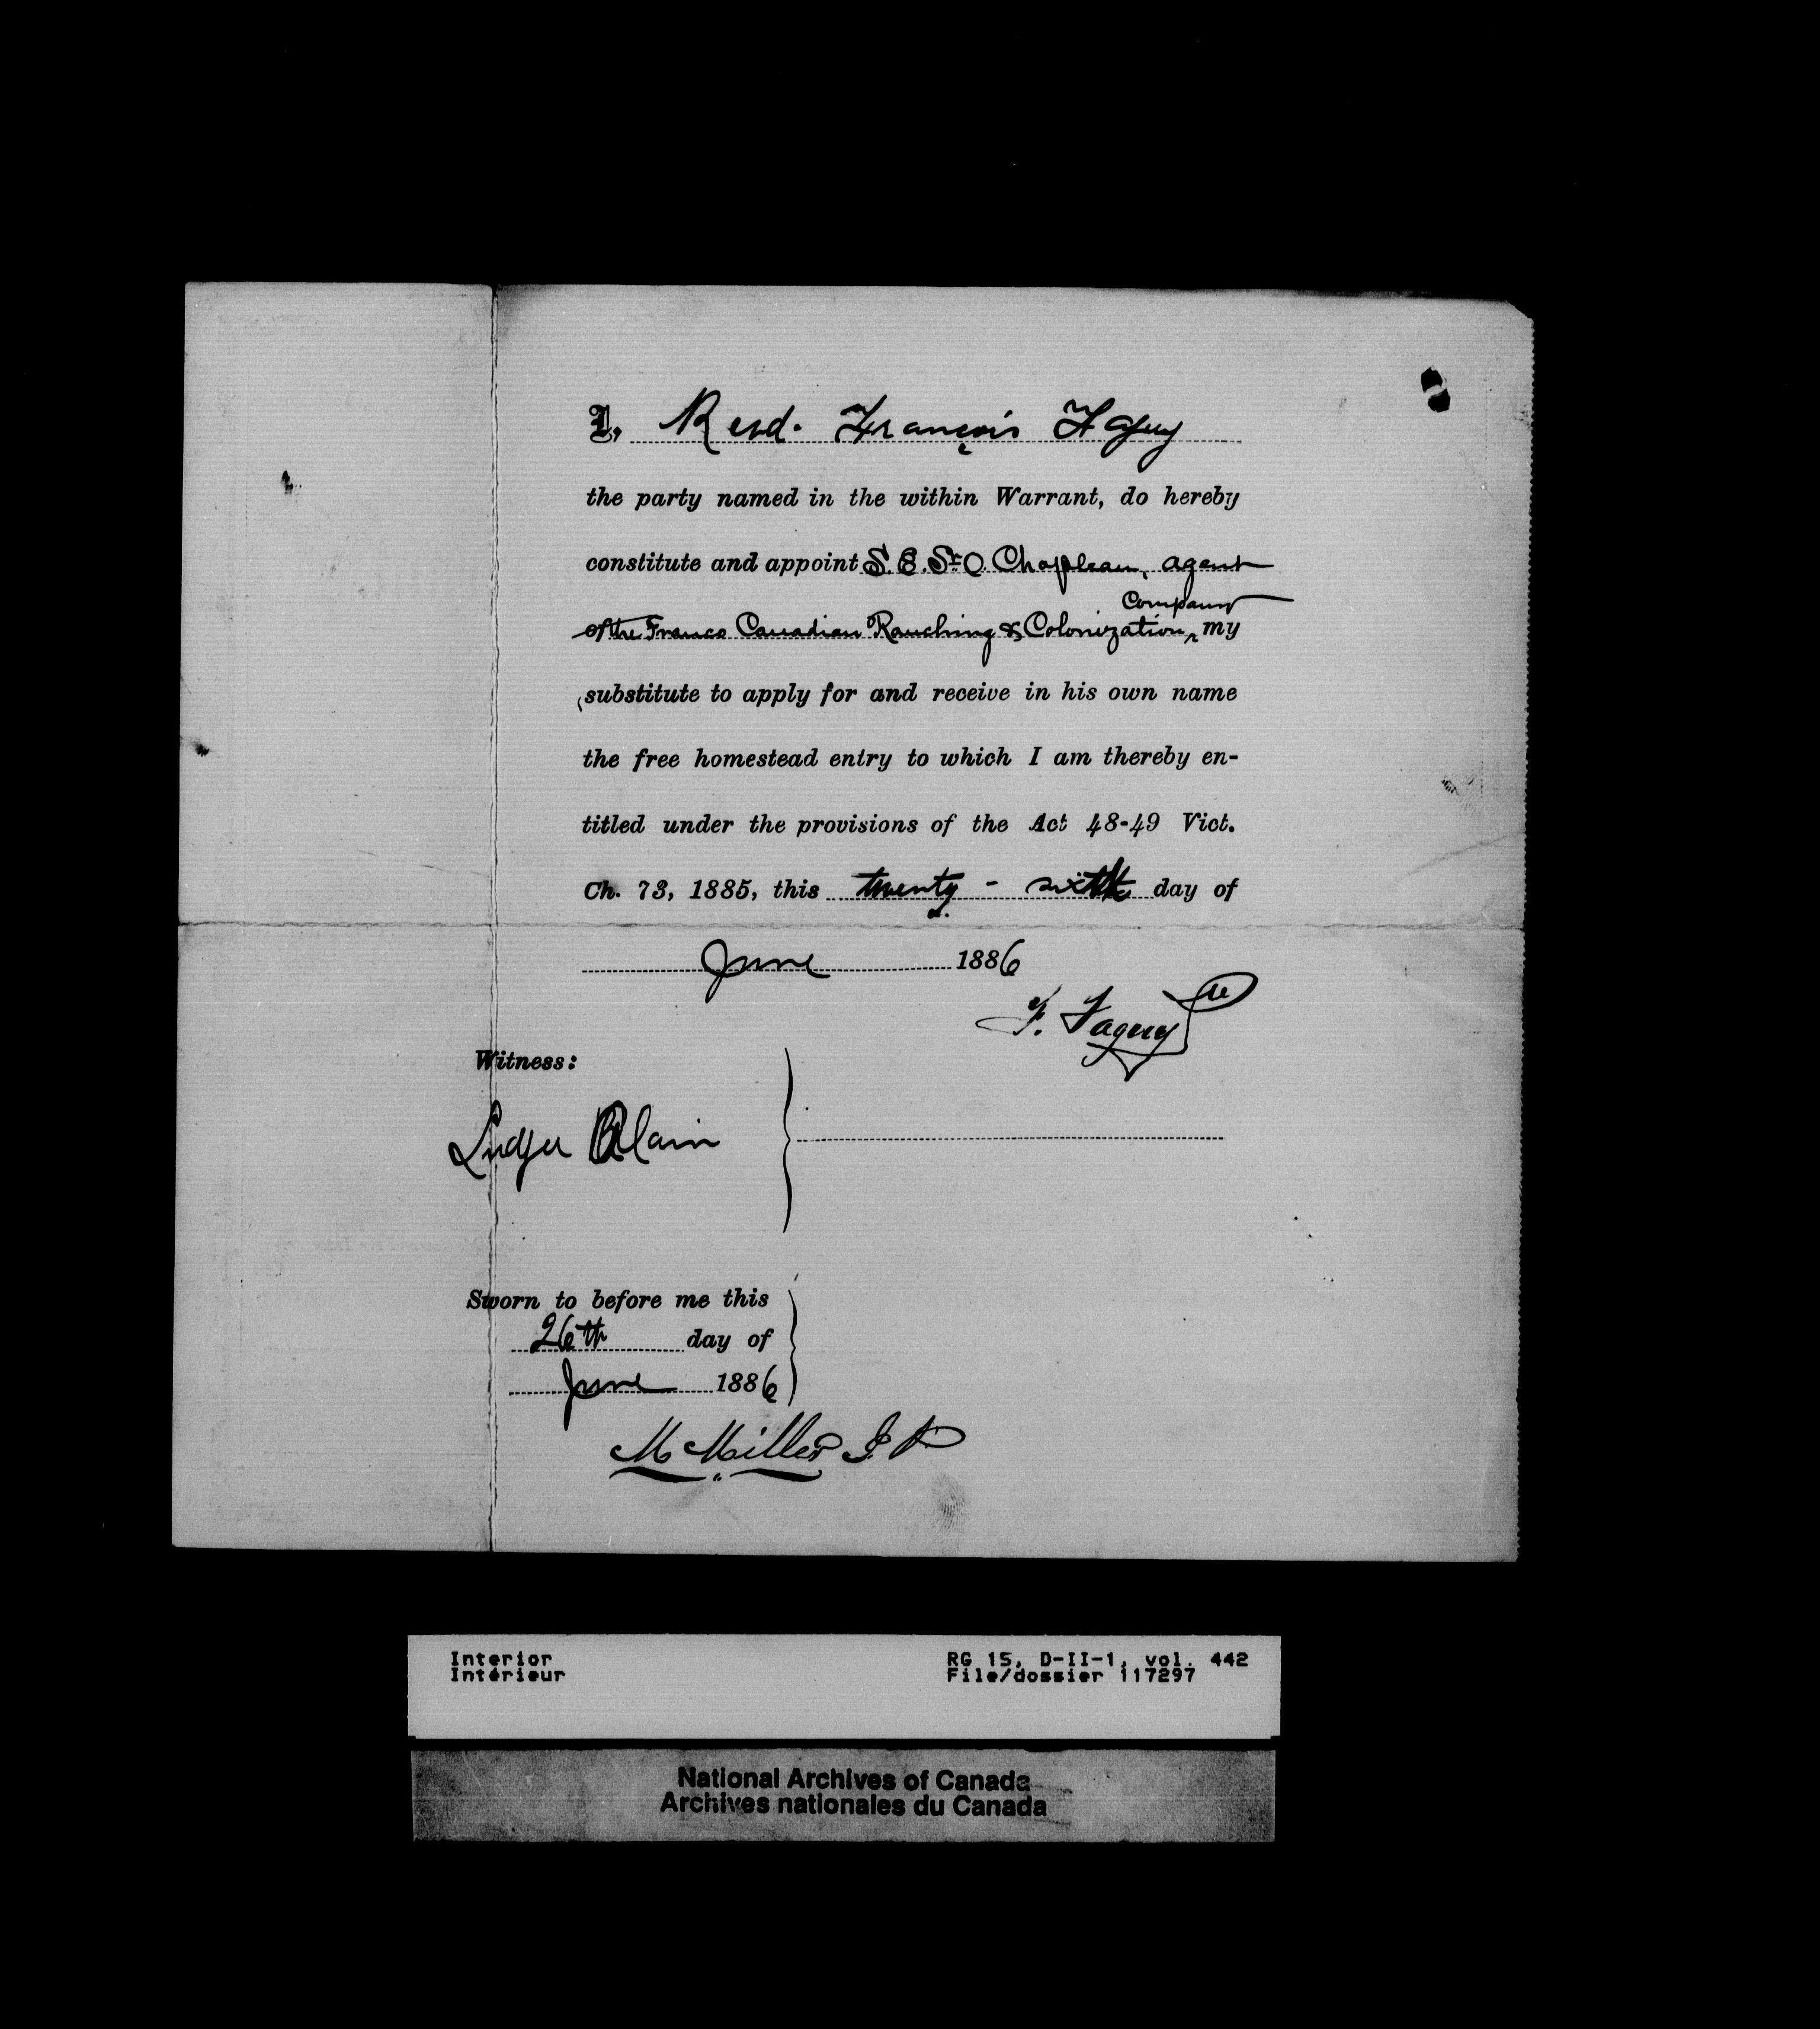 I, Revd. François Faguy
the party named in the within Warrant, do hereby
constitute and appoint S. E. St O. Chapleau, agent
Company
of the Franco Canadian Ranching & Colonization ^ my
substitute to apply for and receive in his own name
the free homestead entry to which I am thereby en-
titled under the provisions of the Act 48-49 Vict.
Ch. 73, 1885, this twenty - sixth day of
June 1886
F. Faguy Ptre
Witness:
Ludger Blain
Sworn to before me this
26th day of
June 1886
M Miller J. P
Interior RG 15, D-II-1, vol. 442
Intérieur File/dossier 117297
National Archives of Canada
Archives nationales du Canada